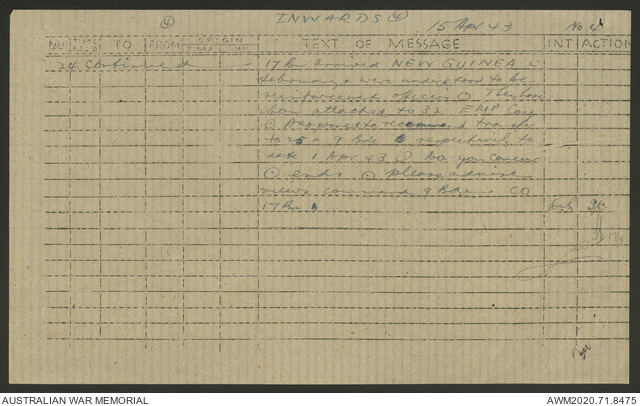 ④
INWARDS ④
15 Apr 43
No. 4
NO TIME REC'D TO FROM ORIGIN TIME TEXT OF MESSAGE INT ACTION
24 Continued — 17 Bn arrived NEW GUINEA
February & were understood to be
reinforcement officers ⊙ They have
been attached to 32 Coy
⊙ Proposed to recommend transfer
to 9 Bde respectively to
date 1 Apr 43 ⊙ Do you concur
⊙ ends ⊙ please advise
views command 9 Bde. CO
17 Bn
17/4
AUSTRALIAN WAR MEMORIAL
AWM2020.71.8475